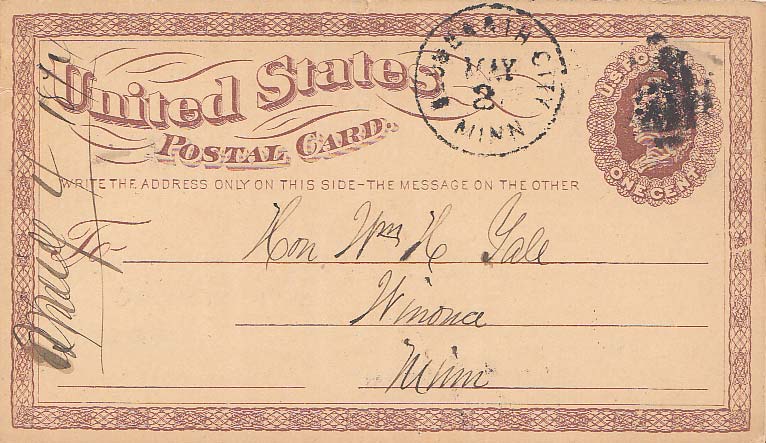 United States
POSTAL CARD.
WUMBERTH CITY
MAY
3
MINN
U.S. POSTAGE
ONE CENT
WRITE THE ADDRESS ONLY ON THIS SIDE-THE MESSAGE ON THE OTHER
To
Hon Wm H Yale
Winona
Minn